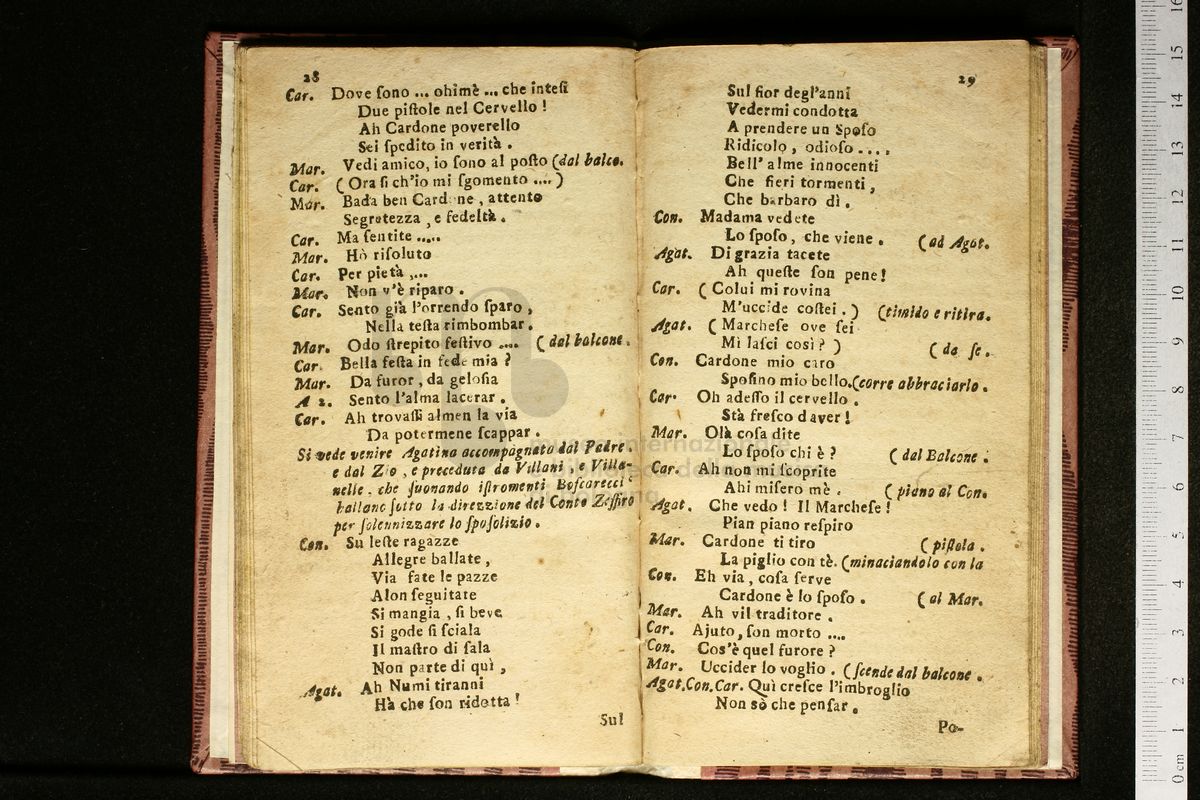 28
Car. Dove ſono ... ohimè ... che inteſi
Due piſtole nel Cervello !
Ah Cardone poverello
Sei ſpedito in verità .
Mar. Vedi amico, io ſono al poſto (dal balco.
Car. ( Ora ſi ch'io mi ſgomento .... )
Mar. Bada ben Cardone , attento
Segretezza , e fedeltà .
Car. Ma ſentite .....
Mar. Hò riſoluto
Car. Per pietà ,...
Mar. Non v'è riparo .
Car. Sento già l'orrendo ſparo ,
Nella teſta rimbombar .
Mar. Odo ſtrepito feſtivo .... ( dal balcone .
Car. Bella feſta in fede mia ?
Mar. Da furor , da geloſia
A 2. Sento l'alma lacerar .
Car. Ah trovaſſi almen la via
Da potermene ſcappar .
Si vede venire Agatina accompagnata dal Padre
e dal Zio , e preceduta da Villani , e Villa-
nelle , che ſuonando iſtromenti Boſcarecci
ballano ſotto la direzzione del Conte Zeffiro
per ſolennizzare lo ſpoſolizio .
Con. Su leſte ragazze
Allegre ballate ,
Via fate le pazze
Alon ſeguitate
Si mangia , ſi beve
Si gode ſi ſciala
Il maſtro di ſala
Non parte di quì ,
Agat. Ah Numi tiranni
Hà che ſon ridotta !
Sul
29
Sul fior degl'anni
Vedermi condotta
A prendere un Spoſo
Ridicolo , odioſo . . . ,
Bell' alme innocenti
Che fieri tormenti ,
Che barbaro dì .
Con. Madama vedete
Lo ſpoſo , che viene . ( ad Agat.
Agat. Di grazia tacete
Ah queſte ſon pene !
Car. ( Colui mi rovina
M'uccide coſtei . ) (timido e ritira.
Agat. ( Marcheſe ove ſei
Mì laſci così ? ) ( da ſe .
Con. Cardone mio caro
Spoſino mio bello.(corre abbraciarlo .
Car. Oh adeſſo il cervello .
Stà freſco d aver !
Mar. Olà coſa dite
Lo ſpoſo chi è ? ( dal Balcone .
Car. Ah non mi ſcoprite
Ahi miſero mè . ( piano al Con.
Agat. Che vedo ! Il Marcheſe !
Pian piano reſpiro
Mar. Cardone ti tiro ( piſtola .
La piglio con tè. (minaciandolo con la
Con. Eh via , coſa ſerve
Cardone è lo ſpoſo . ( al Mar.
Mar. Ah vil traditore .
Car. Ajuto , ſon morto ....
Con. Cos'è quel furore ?
Mar. Uccider lo voglio . (ſcende dal balcone .
Agat.Con.Car. Quì creſce l'imbroglio
Non sò che penſar .
Po-